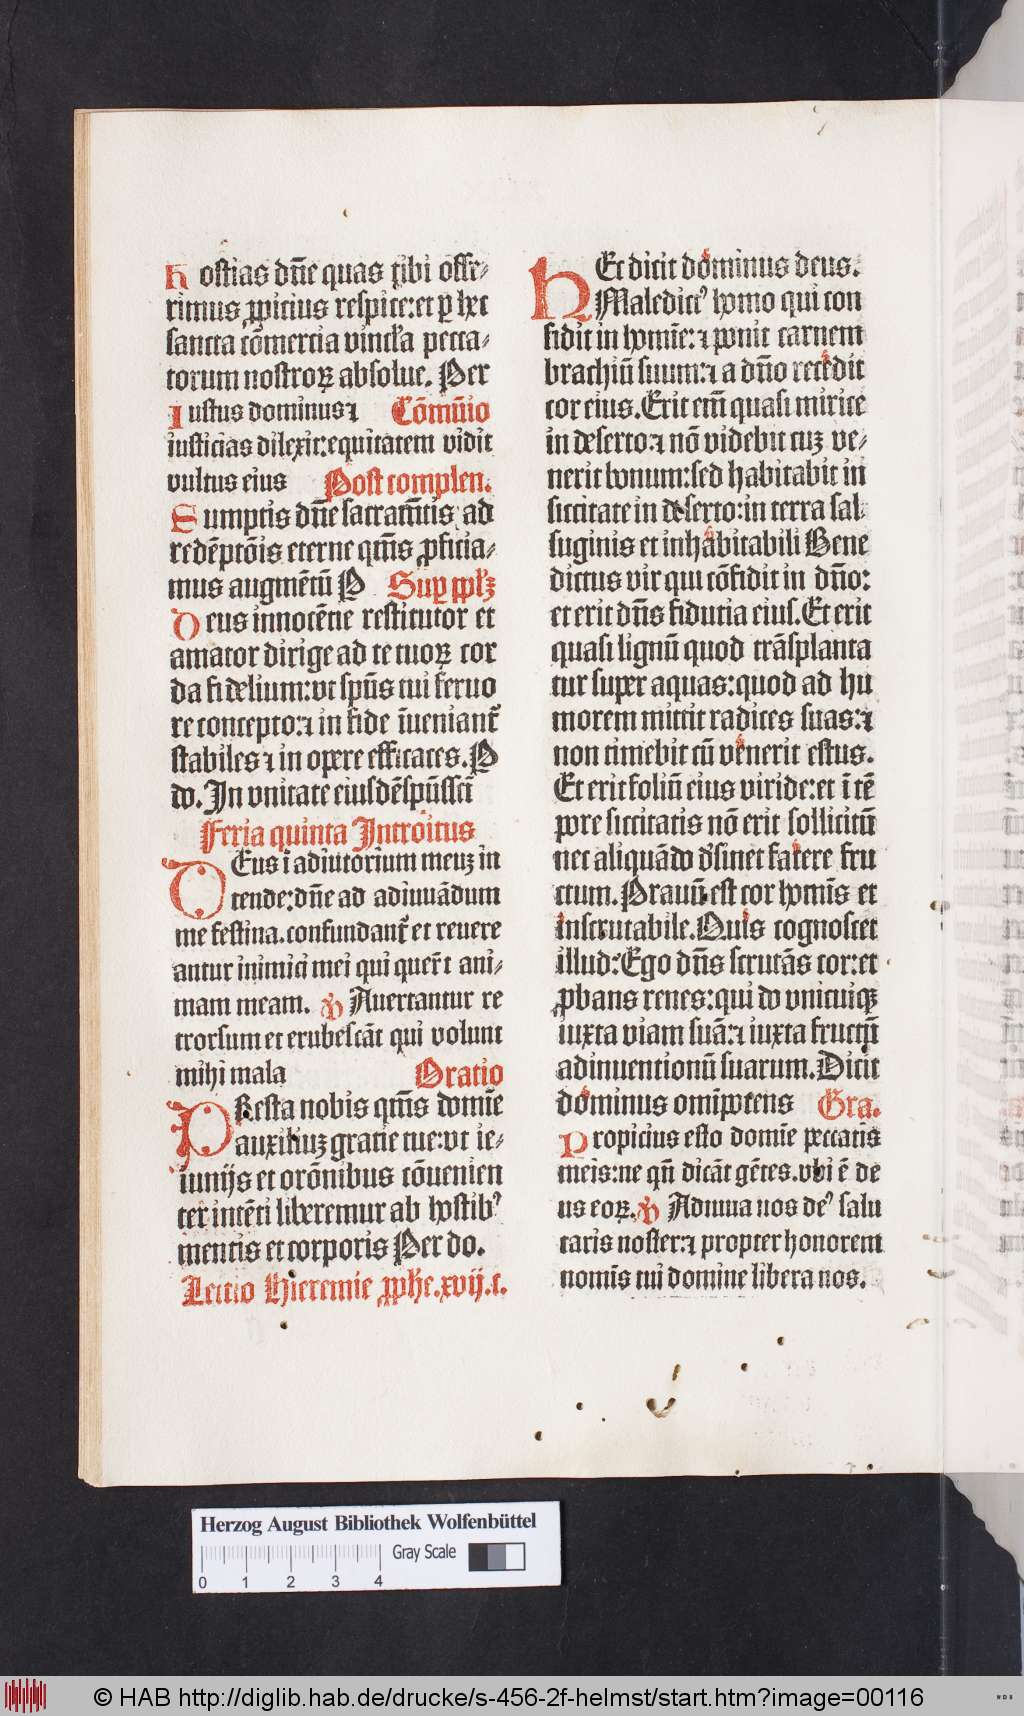 Hostias dn̄e quas tibi offe⸗
rimus ꝓpicius respice:et ꝑ hec
sancta cōmercia vincl̓a pecca⸗
torum nostroꝝ absolue. Per
Iustus dominus ⁊ Cōmūio
iusticias dilexit:equitatem vidit
vultus eius Post complen.
Sumptis dn̄e sacramētis ad
redēptōis eterne qm̄s ꝓficia⸗
mus augmētū P Suꝑ ppl̓ꝫ
Deus innocētie restitutor et
amator dirige ad te tuoꝝ cor
da fidelium:vt spūs tui feruo
re concepto:⁊ in fide īueniant᷑
stabiles ⁊ in opere efficaces. P
do. In vnitate eiusdēspūssctī
Feria quinta Introitus
DEus ī adiutorium meuꝫ in
tende:dn̄e ad adiuuādum
me festina.confundant᷑ et reuere
antur inimici mei qui quer̄t ani⸗
mam meam. ℣ Auertantur re
trorsum et erubescāt qui volunt
mihi mala Oratio
PResta nobis qm̄s domīe
auxiliuꝫ gratie tue:vt ie⸗
iunijs et orōnibus cōuenien
ter intēti liberemur ab hostibꝰ
mentis et corporis Per do.
Lectio Hieremie ꝓphe.xvij.c.
HEc dicit dominus deus.
Maledictꝰ homo qui con
fidit in homīe:⁊ ponit carnem
brachiū suum:⁊ a dn̄o recedit
cor eius.Erit em̄ quasi mirice
in deserto:⁊ nō videbit cuꝫ ve⸗
nerit bonum:sed habitabit in
siccitate in deserto:in terra sal
suginis et inhabitabili Bene
dictus vir qui cōfidit in dn̄o:
et erit dn̄s fiducia eius.Et erit
quasi lignū quod trāsplanta
tur super aquas:quod ad hu
morem mittit radices suas:⁊
non timebit cū venerit estus.
Et erit foliū eius viride:et ī tē
pore siccitatis nō erit sollicitū
nec aliquādo d̓sinet facere fru
ctum.Prauū est cor homīs et
inscrutabile.Quis cognoscet
illud:Ego dn̄s scrutās cor:et
ꝓbans renes:qui do vnicuiqꝫ
iuxta viam suā:⁊ iuxta fructū
adinuentionū suarum.Dicit
dominus omīpotens Gra.
Propicius esto domīe peccatis
meis:ne qn̄ dicāt gētes.vbi ē de
us eoꝝ.℣ Adiuua nos deꝰ salu
taris noster:⁊ propter honorem
nomīs tui domine libera nos.
Herzog August Bibliothek Wolfenbüttel
Gray Scale
0 1 2 3 4
© HAB http://diglib.hab.de/drucke/s-456-2f-helmst/start.htm?image=00116